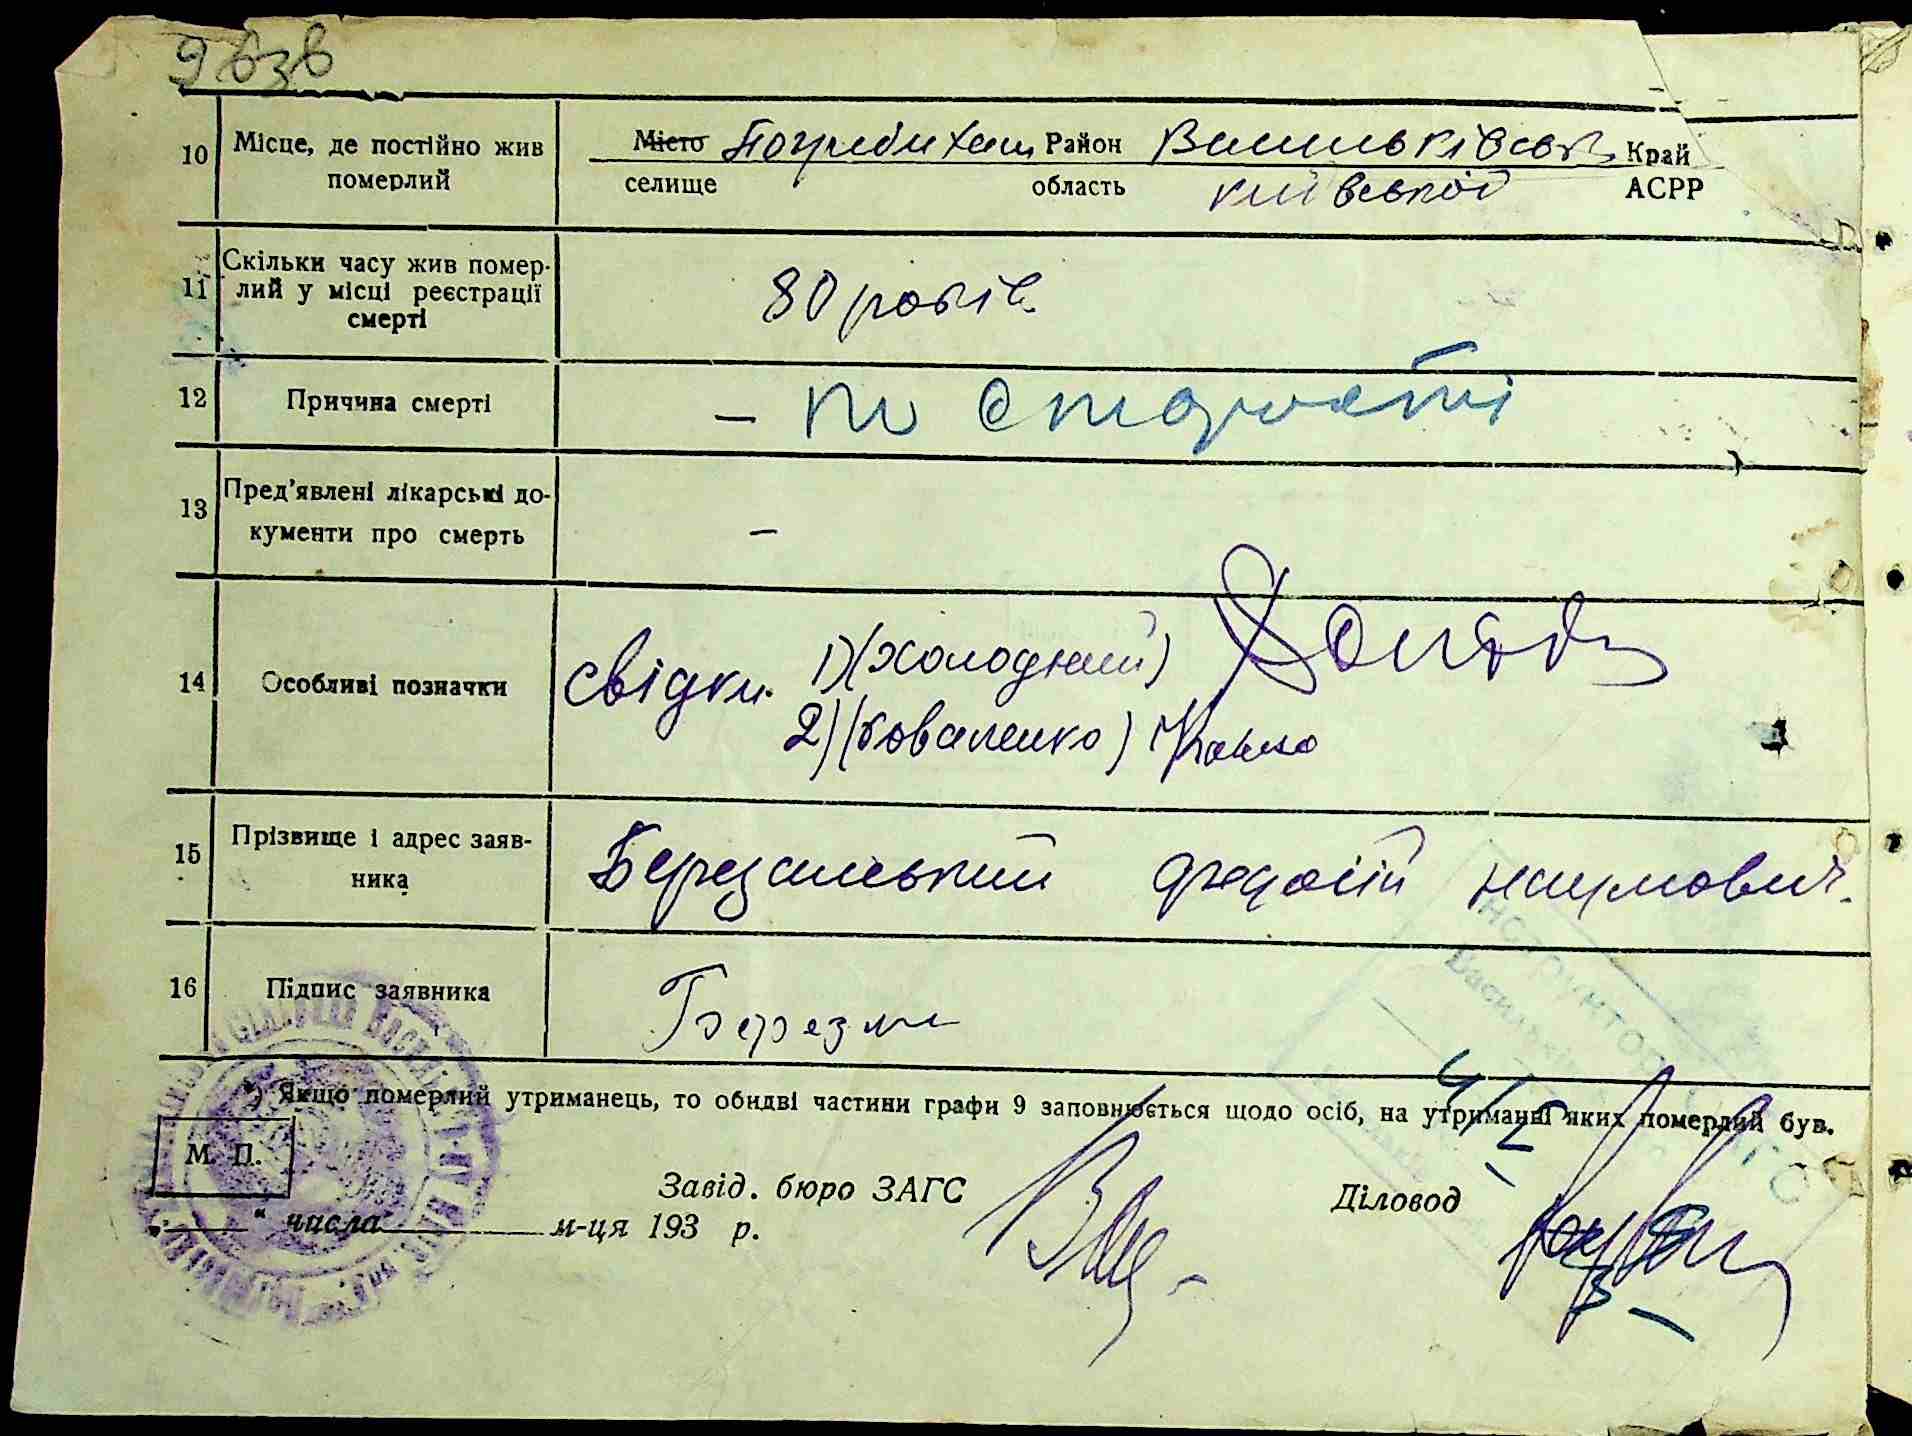 9 взв
10 Місце, де постійно жив померлий
Місто Погреби Хат. Район Васильківськ. Край
селище область київської АСРР
11 Скільки часу жив помер-
лий у місці реєстрації
смерті
80 років.
12 Причина смерті
– по старості
13 Пред'явлені лікарські до-
кументи про смерть
–
14 Особливі позначки
свідки. 1) (Холодний)
2) (Коваленко)
15 Прізвище і адрес заяв-
ника
Березанський Федосій наумович.
16 Підпис заявника
Березан
*) Якщо померлий утриманець, то обидві частини графи 9 заповнюється щодо осіб, на утриманні яких померлий був.
М. П.
Завід. бюро ЗАГС Діловод
„ “ числа м-ця 193 р.